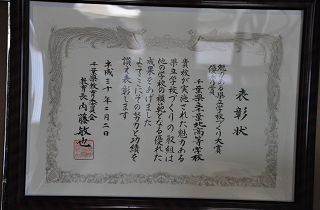 表彰状
魅力ある県立学校づくり大賞
優秀賞
千葉県立千葉北高等学校
貴校が実施された魅力ある
県立学校づくりの取組は
他の学校の模範となる優れた
成果をあげました
よってここにその努力と功績を
讃え表彰します
平成三十年二月二日
千葉県教育委員会
教育長 内藤敏也